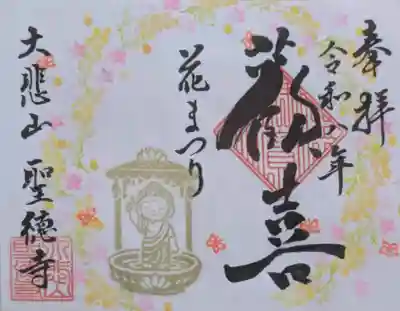 奉拝
令和 年
歡喜
花まつり
大悲山 聖徳寺